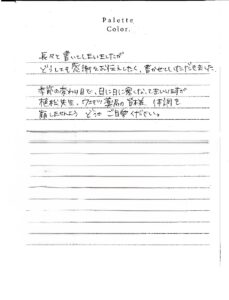 Palette
Color.
長々と書いてしまいましたが
どうしても感謝をお伝えしたく、書かせていただきました。
季節の変わり目で、日に日に寒くなってまいりますが
植松先生、ワカサリ薬品の皆様 体調を
崩しませんよう どうか ご自愛ください。